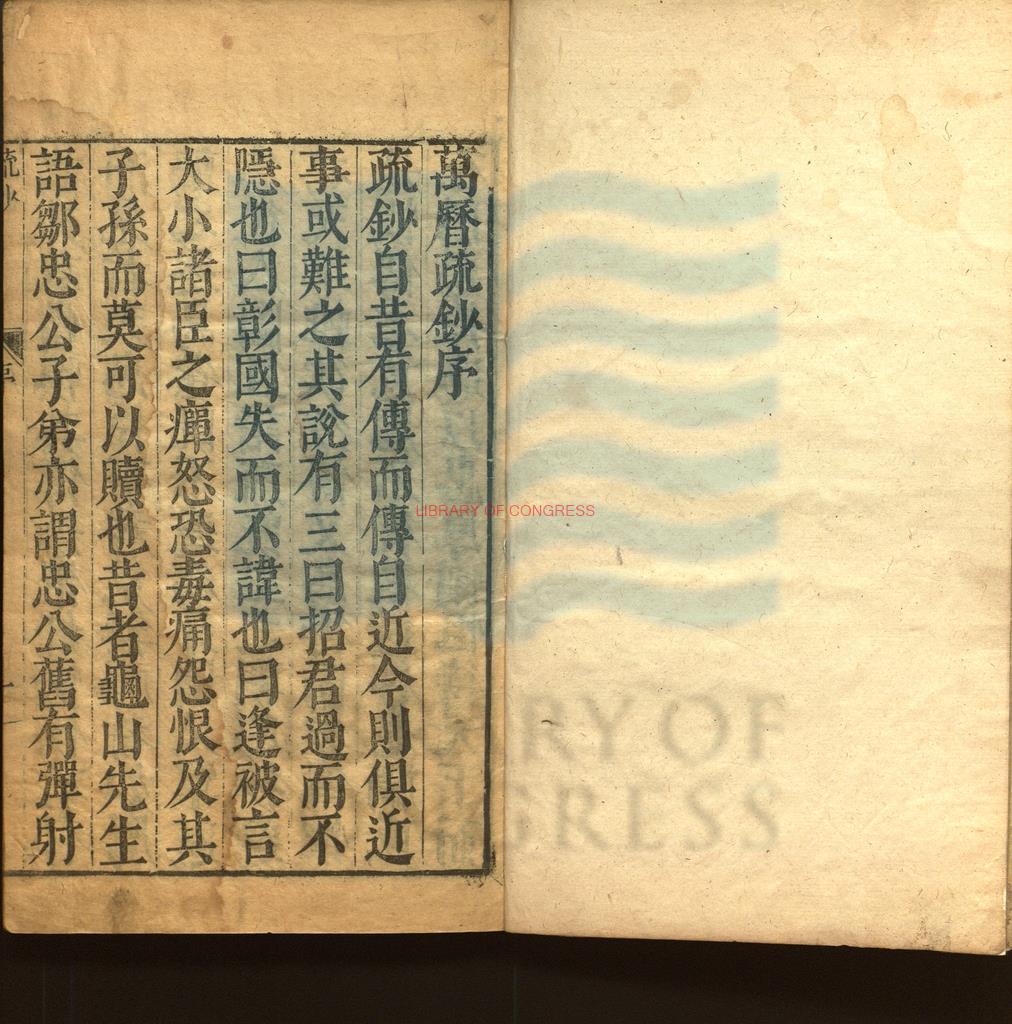 萬曆疏鈔序
疏鈔自昔有傳而傳自近今則俱近
事或難之其說有三曰招君過而不
隱也曰彰國失而不諱也曰逢被言
大小諸臣之癉怒恐毒痛怨恨及其
子孫而莫可以贖也昔者龜山先生
語鄒忠公子弟亦謂忠公舊有彈射
疏鈔
一
LIBRARY OF CONGRESS
RY OF
GRESS